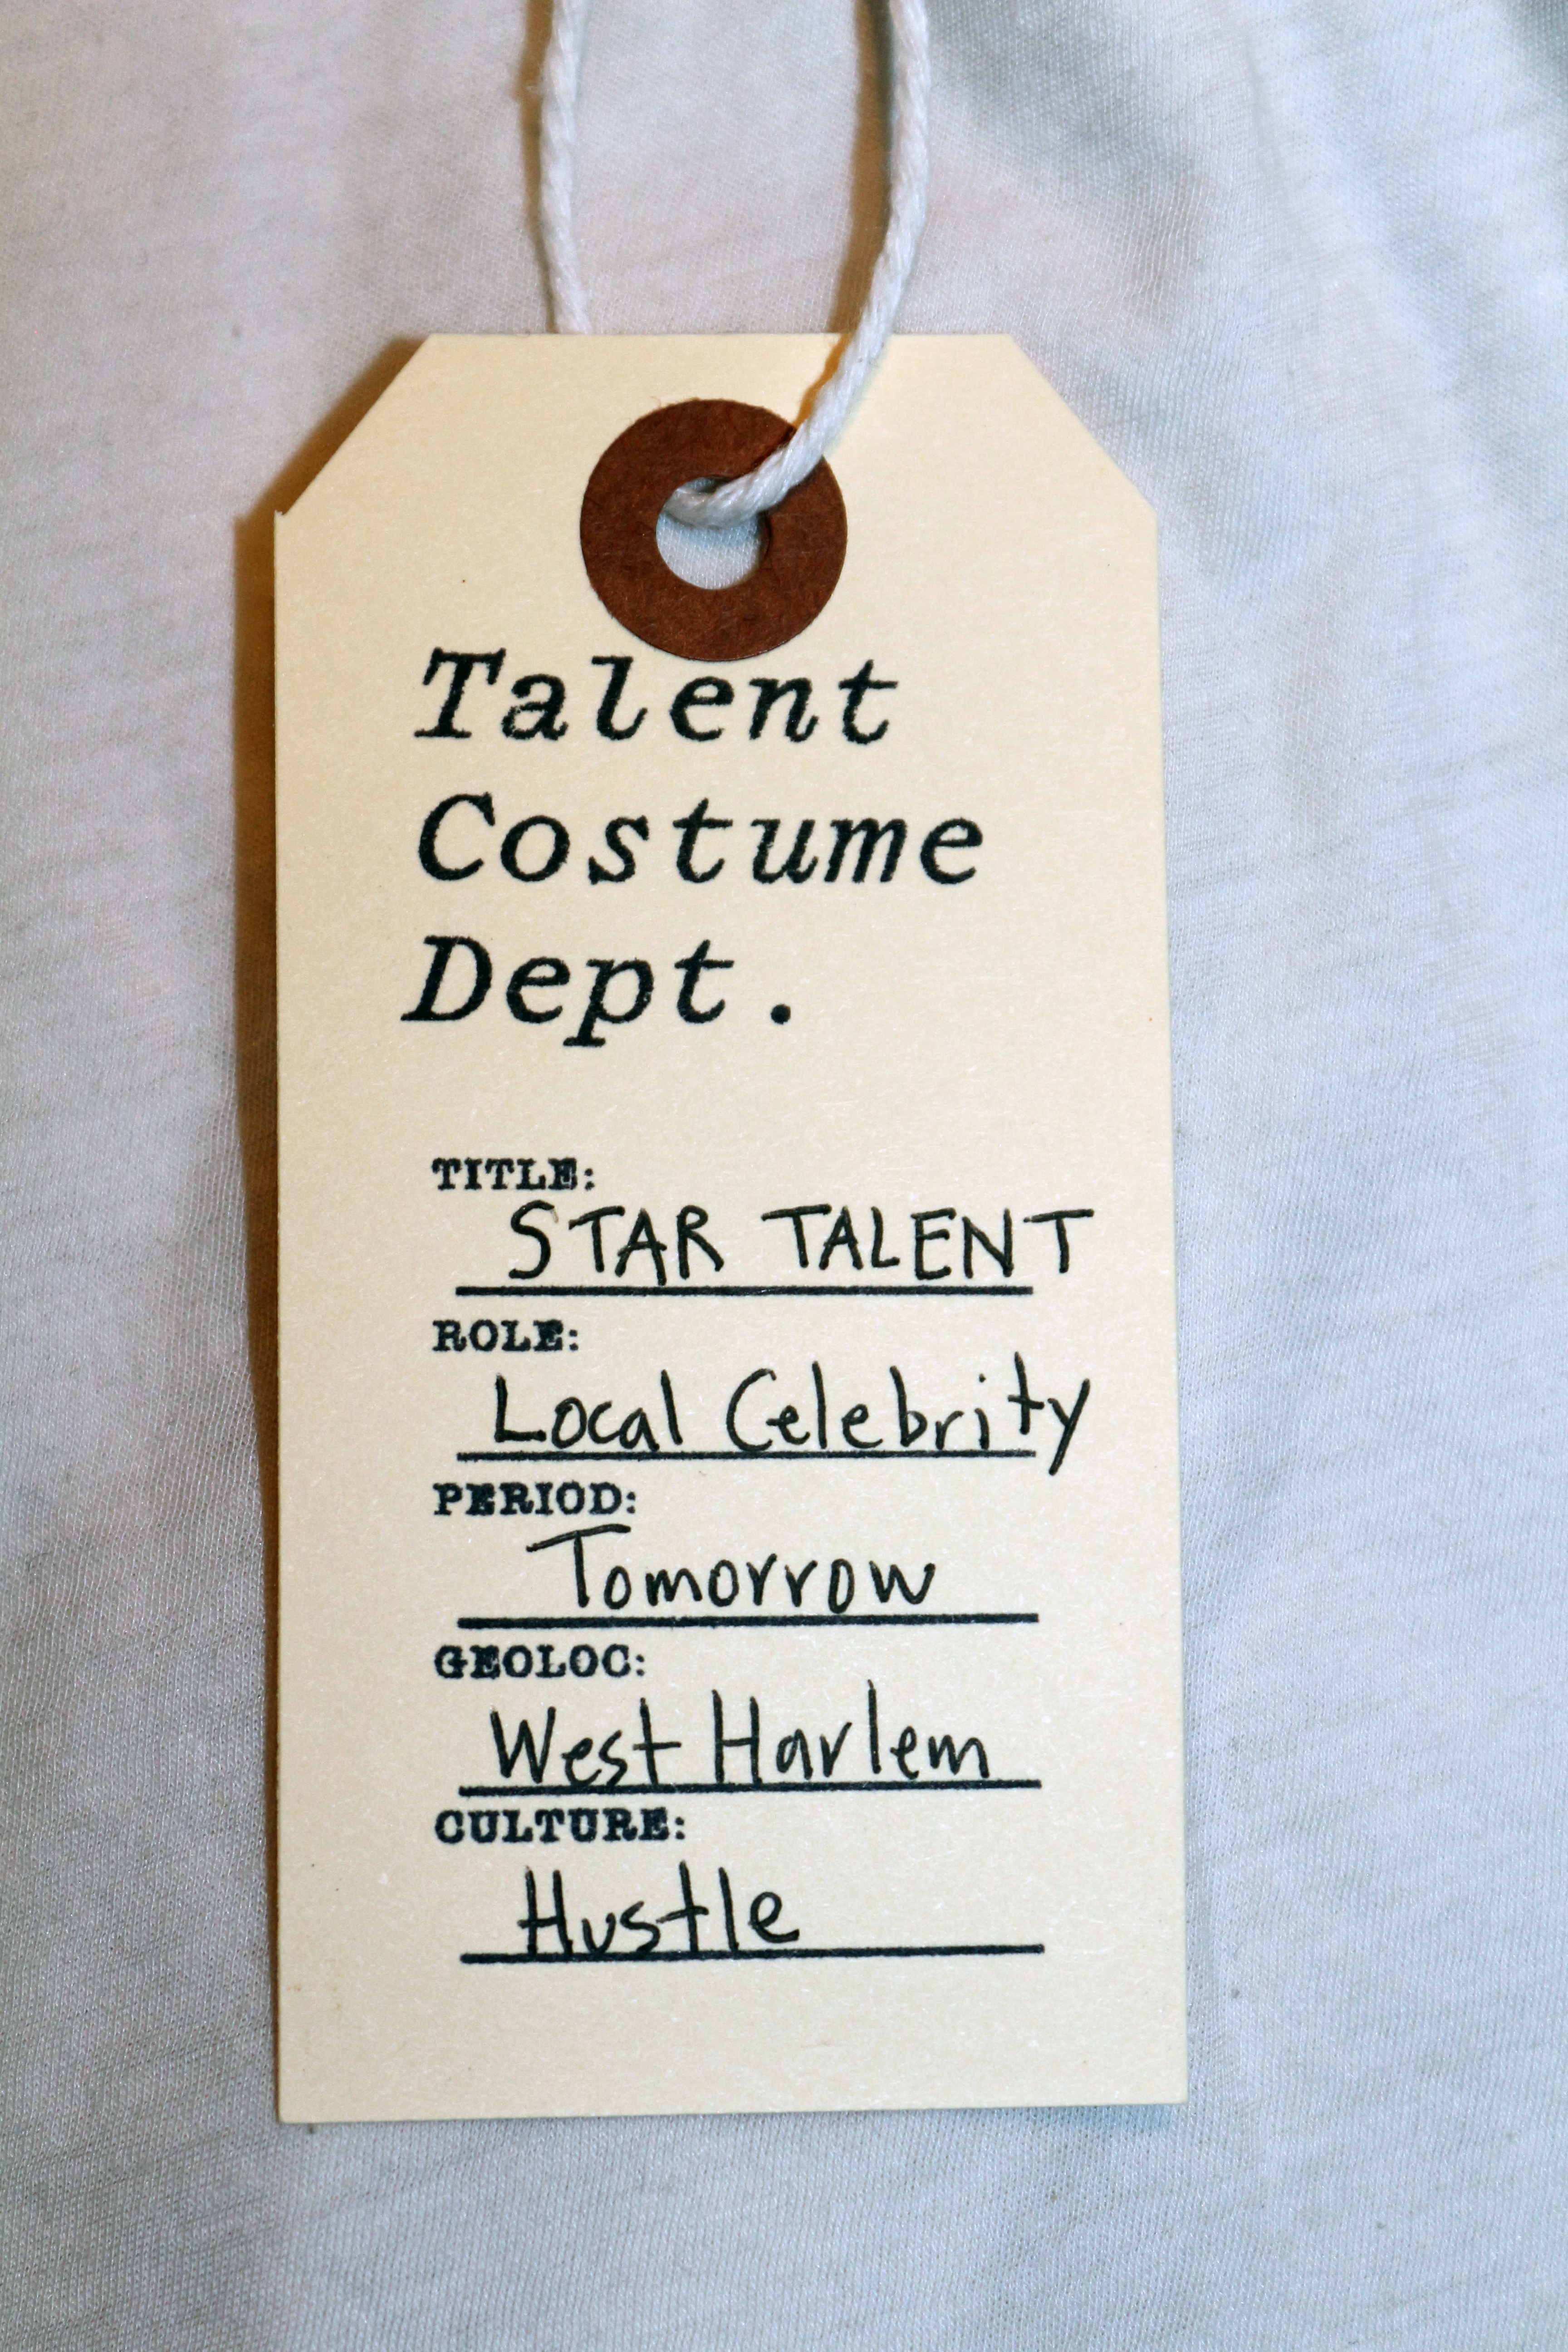 Talent
Costume
Dept.
TITLE:
STAR TALENT
ROLE:
Local Celebrity
PERIOD:
Tomorrow
GEOLOC:
West Harlem
CULTURE:
Hustle